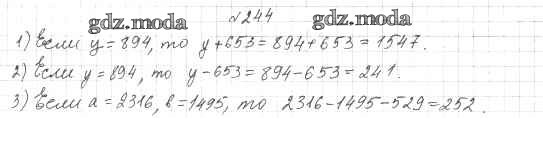 №244
gdz.moda gdz.moda
1) Если y=894, то y+653=894+653=1547.
2) Если y=894, то y-653=894-653=241.
3) Если a=2316, b=1495, то 2316-1495-529=252.